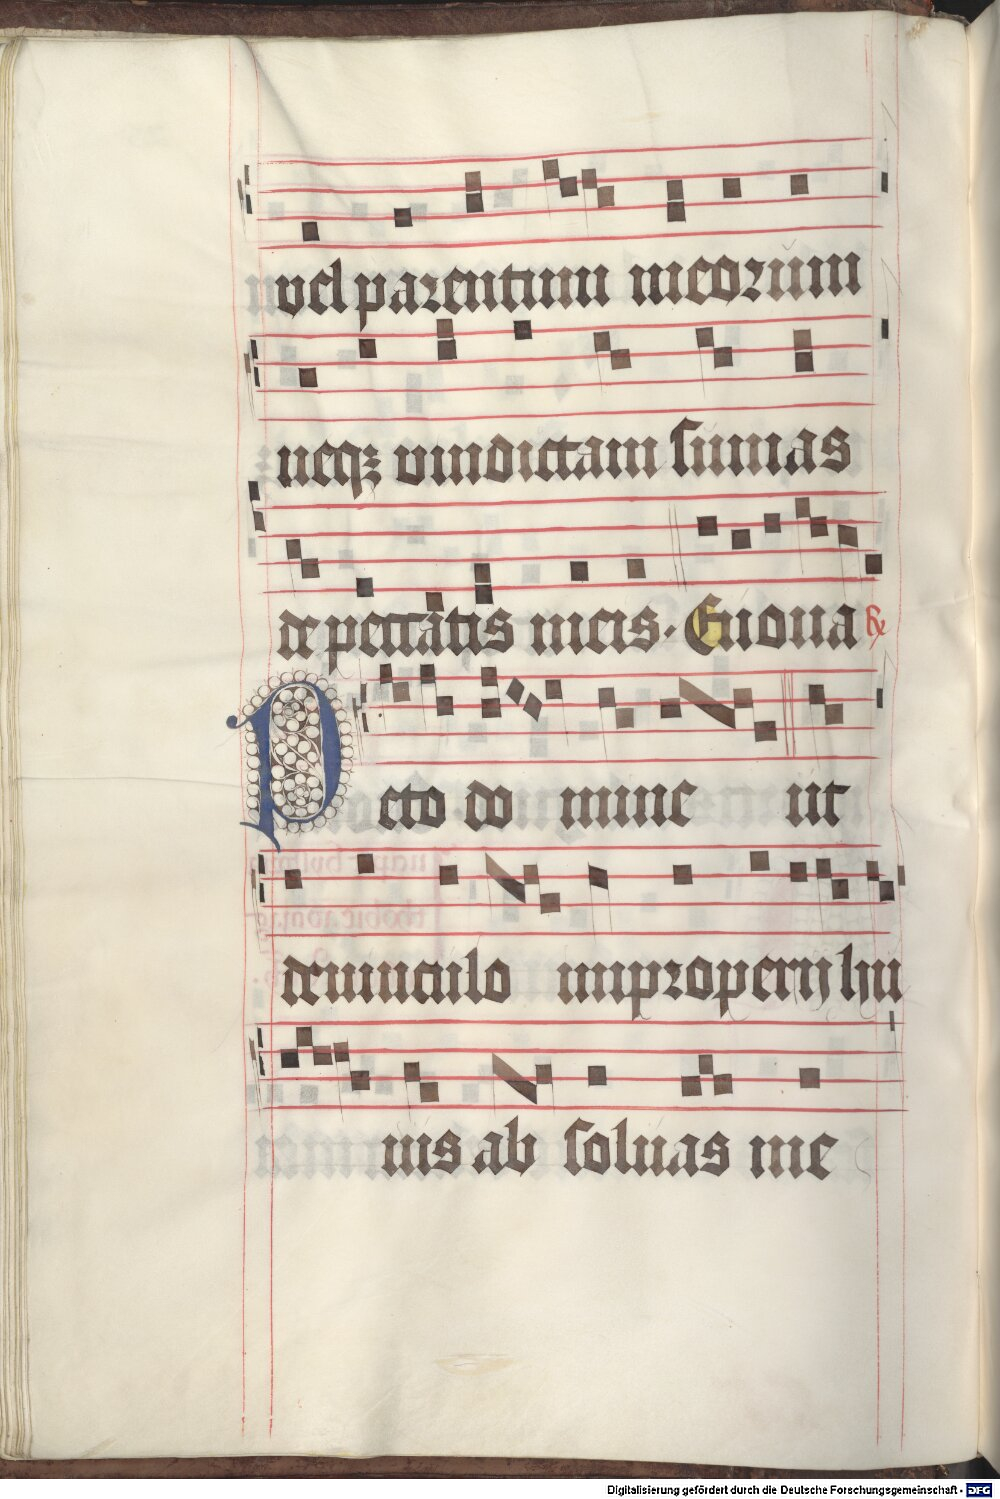 vel parentum meorūm
neqꝫ vindictam sūmas
de peccatis meis. Euoua ℟
Pecto do mine ut
deuinculo improperij hu
ius ab soluas me
Digitalisierung gefördert durch die Deutsche Forschungsgemeinschaft - DFG